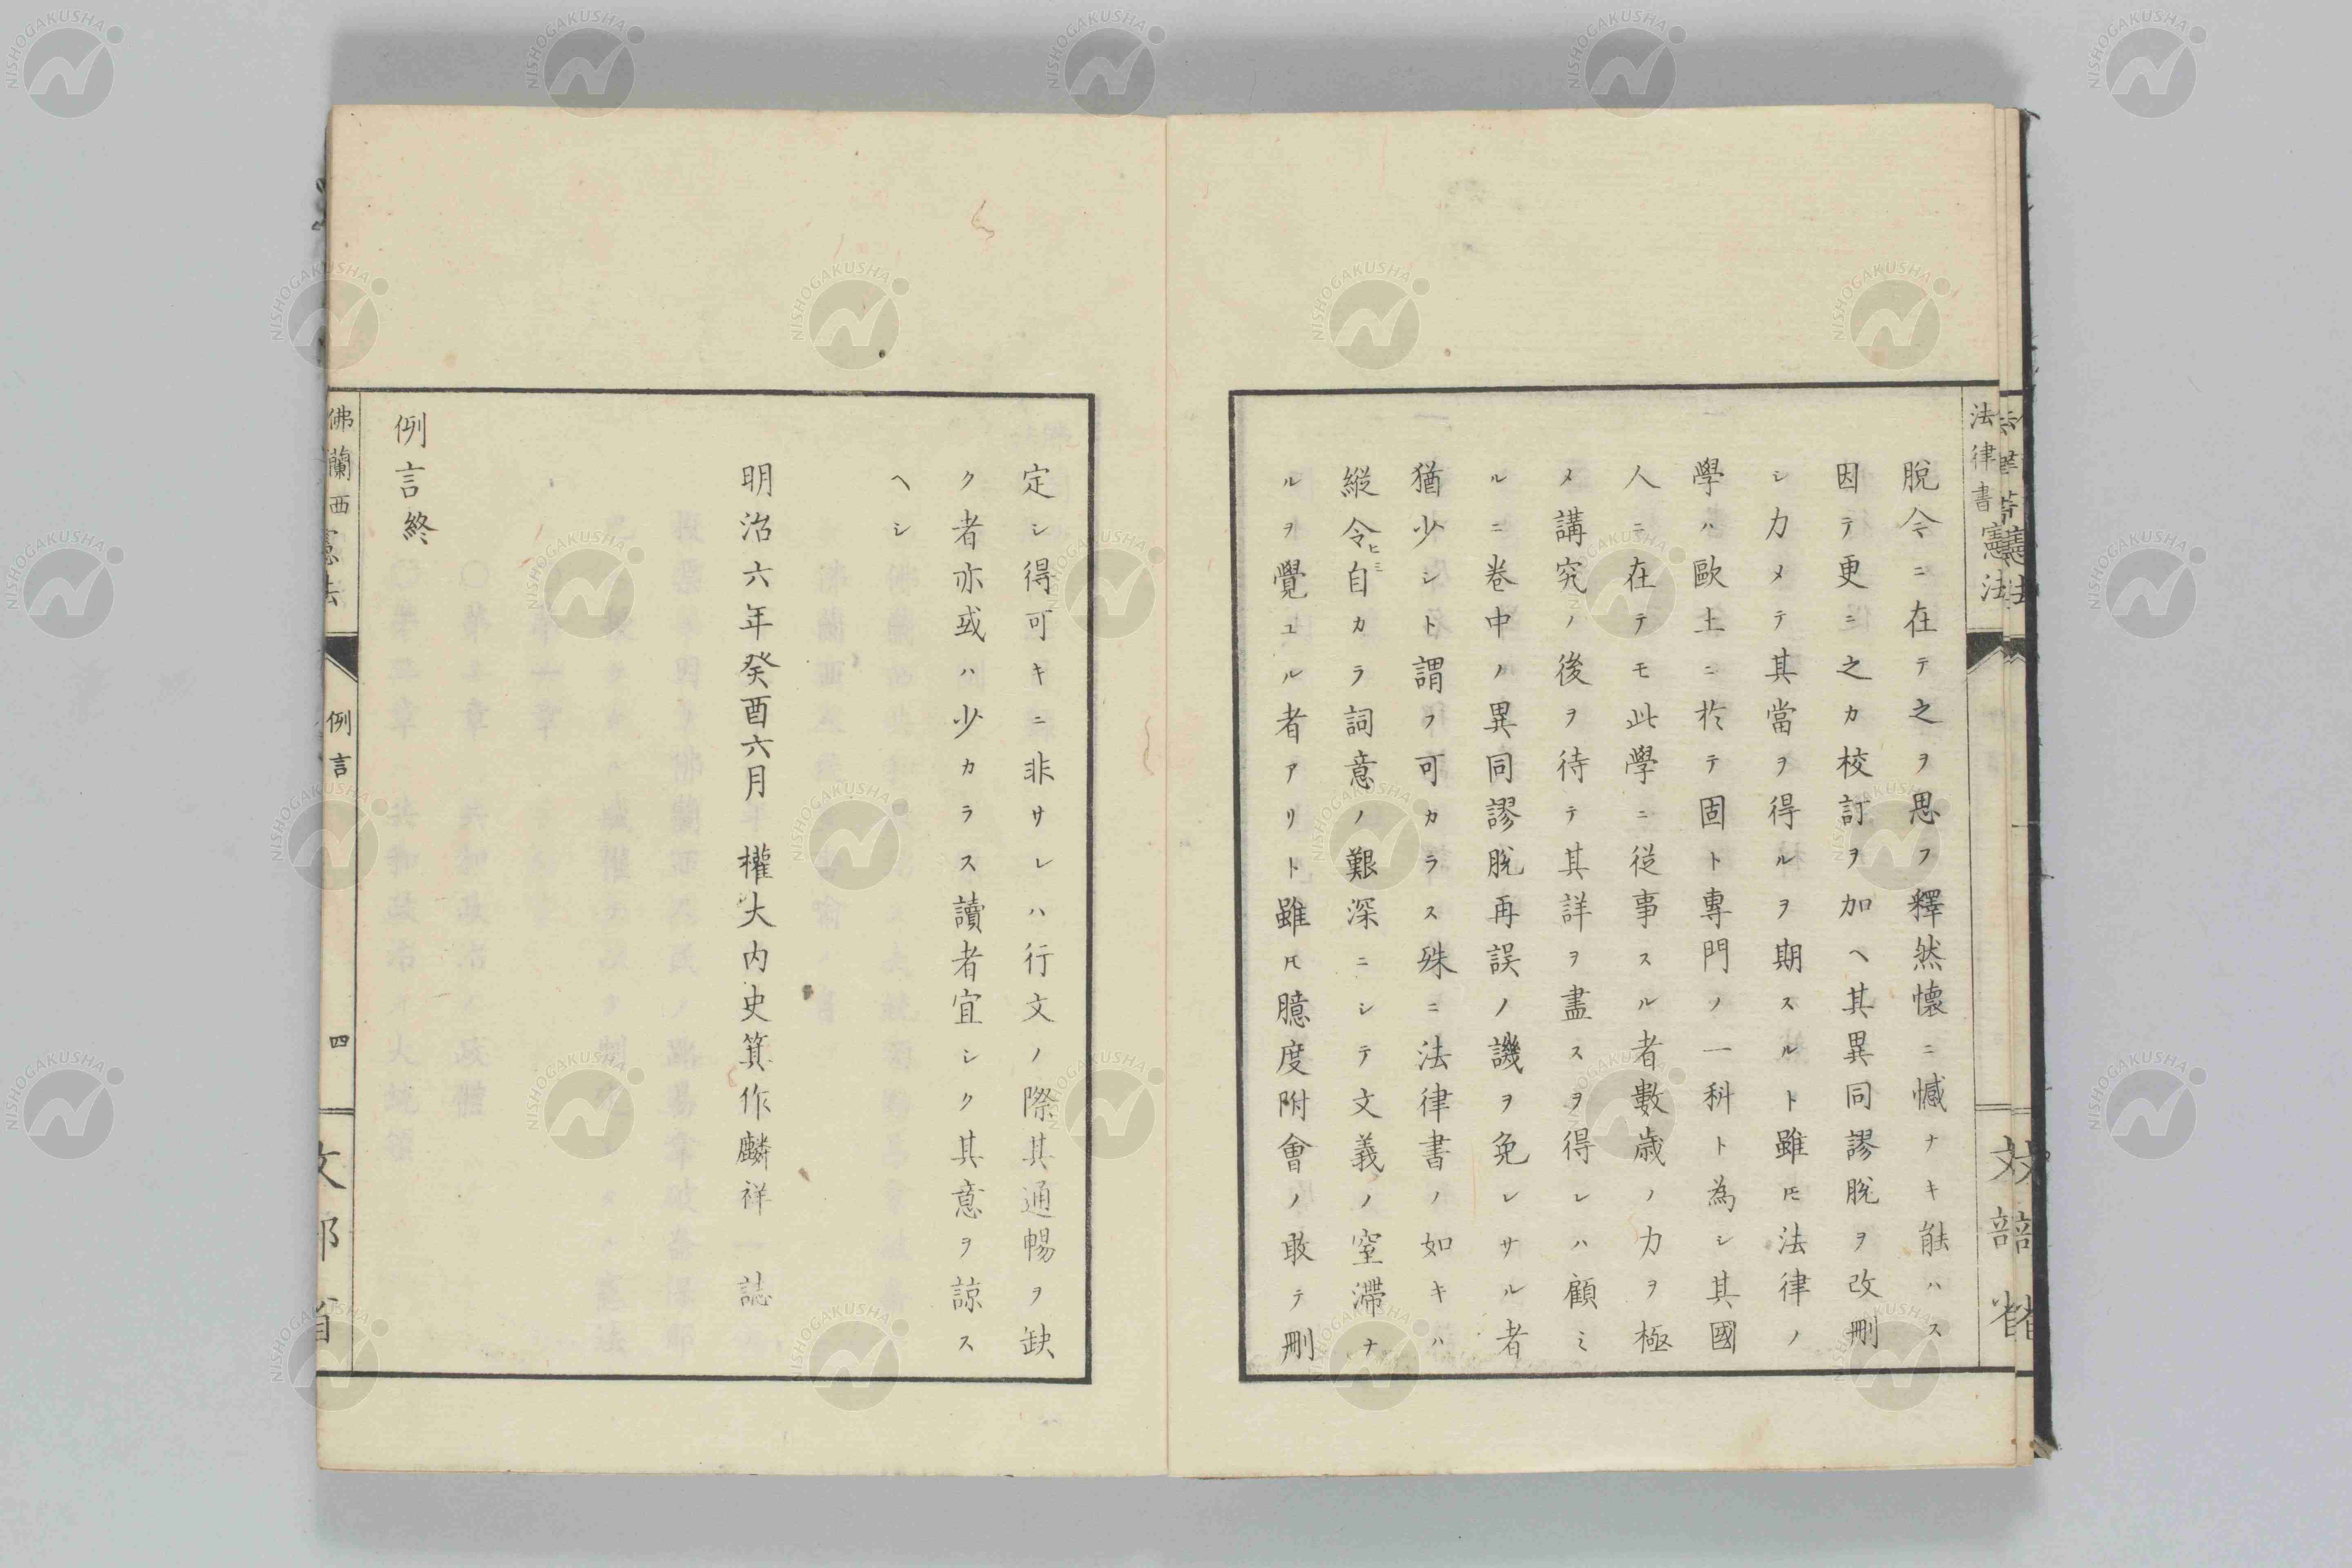 脱今ニ在テ之ヲ思フ釋然懷ニ憾ナキ能ハス
因テ更ニ之カ校訂ヲ加ヘ其異同謬脱ヲ改刪
シ力メテ其當ヲ得ルヲ期スルト雖𪜈法律ノ
學ハ歐土ニ於テ固ト專門ノ一科ト為シ其國
人ニ在テモ此學ニ従事スル者數歳ノ力ヲ極
メ講究ノ後ヲ待テ其詳ヲ盡スヲ得レハ顧ミ
ルニ巻中ノ異同謬脱再誤ノ譏ヲ免レサル者
猶少シト謂フ可カラス殊ニ法律書ノ如キハ
縦令ヒ自カラ詞意ノ艱深ニシテ文義ノ窒滯ナ
ルヲ覺ユル者アリト雖𪜈臆度附會ノ敢テ刪
定シ得可キニ非サレハ行文ノ際其通暢ヲ缺
ク者亦或ハ少カラス讀者宜シク其意ヲ諒ス
ヘシ
明治六年癸酉六月 權大内史箕作麟祥 誌
例言終
法律書
憲法
佛蘭西憲法
例言
四
文部省
NISHOGAKUSHA